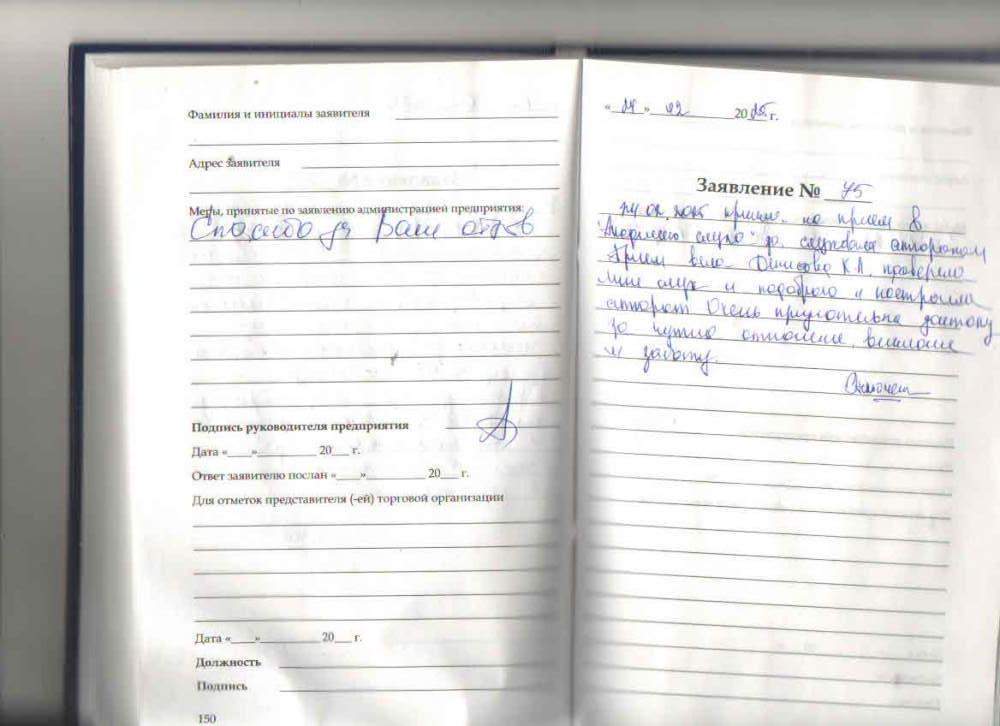 Фамилия и инициалы заявителя
Адрес заявителя
Меры, принятые по заявлению администрацией предприятия:
Спасибо за Ваш отзыв
Подпись руководителя предприятия
Дата «___»__________ 20___ г.
Ответ заявителю послан «___»__________ 20___ г.
Для отметок представителя (-ей) торговой организации
Дата «___»__________ 20___ г.
Должность
Подпись
150
« » 02 2025 г.
Заявление № 75
на прием в
слуха" за слуховым аппаратом
Прием вела Денисова К.А. проверила
мне слух и подобрала и настроила
аппарат Очень признательна доктору
за чуткое отношение, внимание
и заботу.